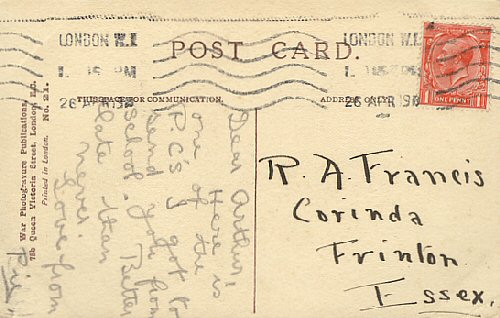 LONDON W.1
PM
26 APR
LONDON W.1
PM
26 APR
POST CARD.
THIS SPACE FOR COMMUNICATION.
ADDRESS ONLY.
ONE PENNY
War Photogravure Publications,
75b Queen Victoria Street, London, E.C.
Printed in London.
No. 21.
Dear Arthur,
Here is
one of the
P.C's I got to
send you from
school. Better
late than
never.
Love from
R. A. Francis
Corinda
Frinton
Essex.